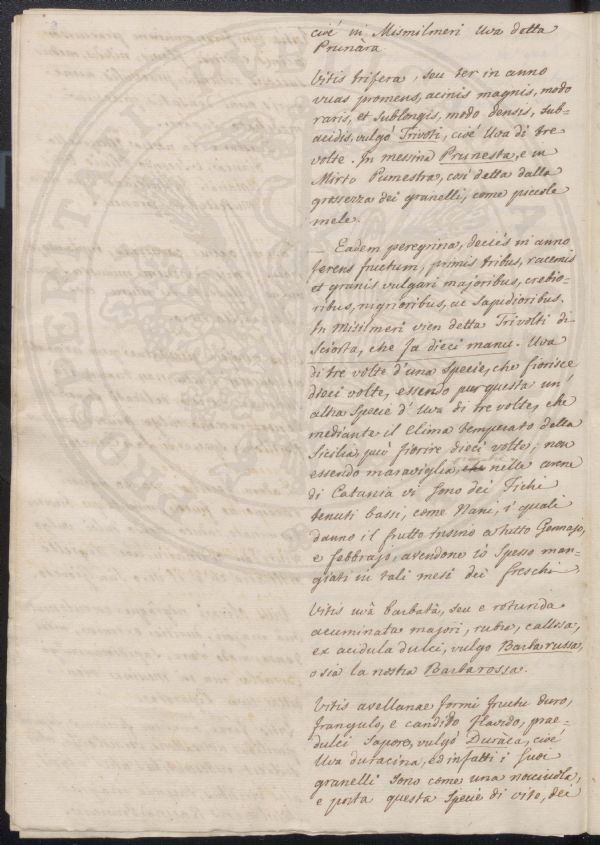 cioè in Mismilmeri Uva detta
Prunara
Vitis trifera, seu ter in anno
vuas promens, acinis magnis, modo
raris, et sublongis, modo densis, sub=
acidis, vulgò Trivoti, cioè Uva di tre
volte. In messina Prunesta, e in
Mirto Pumestra, così detta dalla
grossezza dei granelli, come piccole
mele.
Eadem peregrina, deciès in anno
ferens fructum, primis tribus, racemis
et granis vulgari majoribus, crebio=
ribus, nigrioribus, ac sapidioribus.
In Misilmeri vien detta Trivolti di=
Sciorta, che fa dieci manu. Uva
di tre volte d'una specie, che fiorisce
dieci volte, essendo pur questa un'
altra specie d'Uva di tre volte, che
mediante il Clima temperato della
Sicilia può fiorire dieci volte, non
essendo maraviglia, nelle arene
di Catania vi sono dei Fichi
tenuti bassi, come Nani, i quali
danno il frutto insino a tutto Gennajo,
e febbrajo, avendone io spesso man=
giati in tali mesi dei freschi
Vitis uvâ barbatâ, seu e rotunda
acuminata majori, rubra, callosa,
ex acidula dulci, vulgo Barbarussa,
o sia la nostra Barbarossa.
Vitis avellanae formi fructu duro,
frangulo, e candido flavido, prae=
dulci sapore, vulgò Duraca, cioè
Uva duracina, ed infatti i suoi
granelli sono come una nocciuola,
e porta questa specie di vite, dei